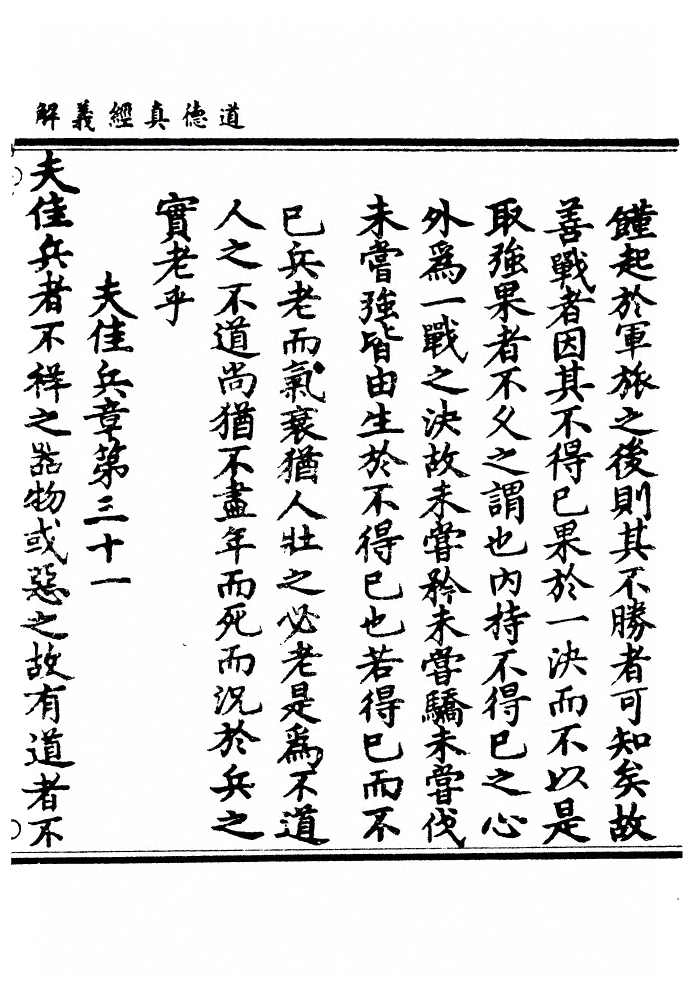 道德真經義解
饉起於軍旅之後則其不勝者可知矣故
善戰者因其不得已果於一決而不以是
取強果者不久之謂也內持不得已之心
外爲一戰之決故未嘗矜未嘗驕未嘗伐
未嘗強皆由生於不得已也若得已而不
已兵老而氣衰猶人壯之必老是爲不道
人之不道尚猶不盡年而死而況於兵之
實老乎
夫佳兵章第三十一
夫佳兵者不祥之器物或惡之故有道者不